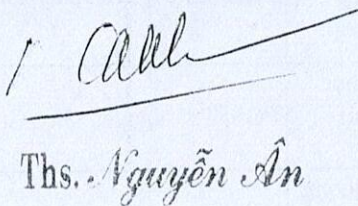 Ths. Nguyễn Ân